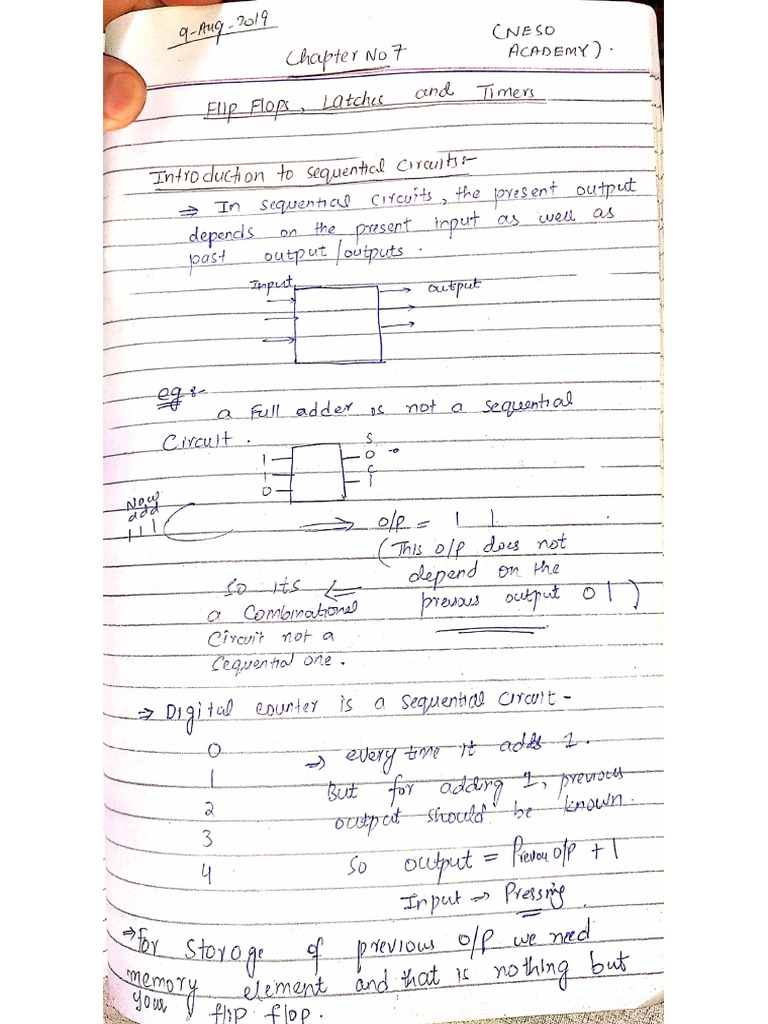 9-Aug-2019
(NESO
ACADEMY).
Chapter No 7
Flip Flops, Latches and Timers
Introduction to sequential circuits:-
⇒ In sequential circuits, the present output
depends on the present input as well as
past output/outputs.
Input
output
eg:-
a Full adder is not a sequential
Circuit.
S
1 0
1 C
0 1
Now
add
1 1 1
⇒ o/p = 1 1
(This o/p does not
depend on the
previous output 0 1)
so its ⇐
a Combinational
Circuit not a
Cequential one.
⇒ Digital counter is a sequential circuit -
0
1
2
3
4
⇒ every time it adds 1.
But for adding 1, previous
output should be known.
So output = Previou o/p + 1
Input ⇒ Pressing
⇒ For Storage of previous o/p we need
memory element and that is nothing but
your flip flop.